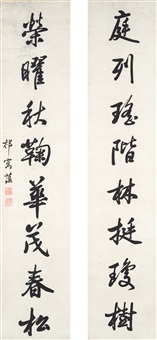 庭列瑤階林挺瓊樹
榮曜秋鞠華茂春松
祁寯藻